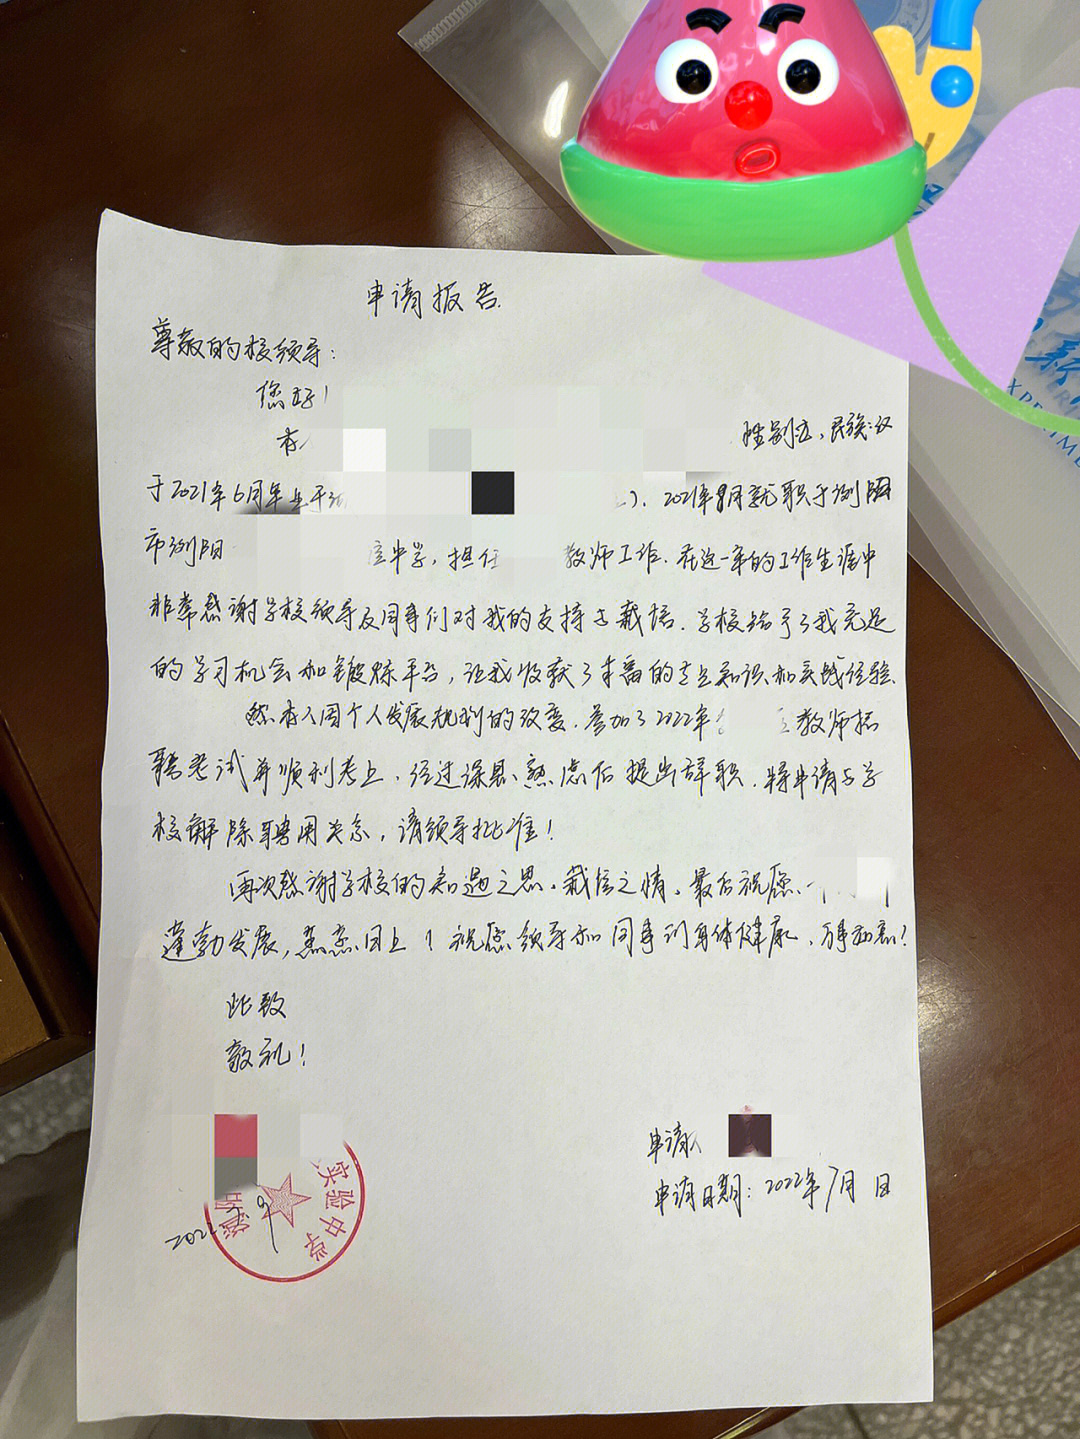 申请报告
尊敬的校领导：
您好！
本
性别女，民族汉
于2021年6月毕业于 ）．2021年8月就职于浏阳
市浏阳 中学，担任 教师工作．在这一年的工作生涯中
非常感谢学校领导及同事们对我的支持与栽培．学校给予了我充足
的学习机会和锻炼平台，让我收获了丰富的专业知识和实践经验．
然本人因个人发展规划的改变．参加了2022年 教师招
聘考试并顺利考上．经过深思、熟虑后提出辞职．特申请与学
校解除聘用关系，请领导批准！
再次感谢学校的知遇之恩．栽培之情．最后祝愿
蓬勃发展，蒸蒸日上！祝愿领导和同事们身体健康．万事如意！
此致
敬礼！
申请人
申请日期：2022年7月 日
实验中学
2022.7.9